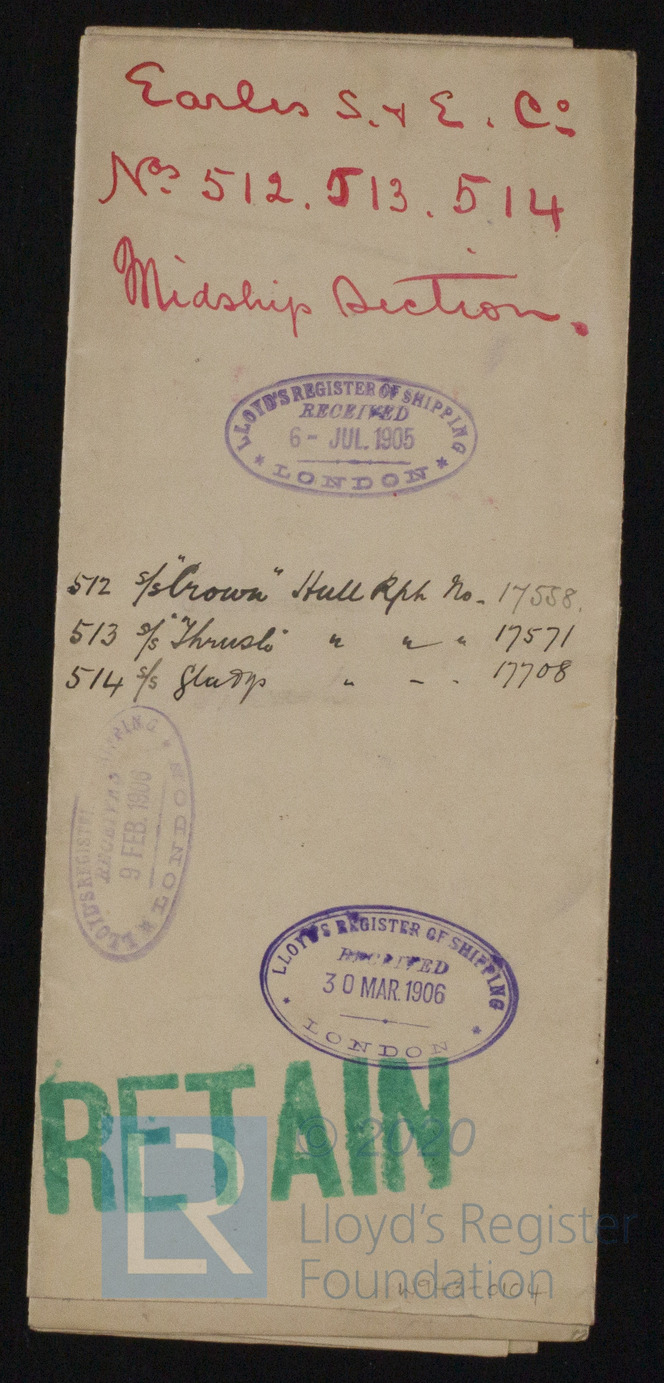 Earles S. & E. Co
Nos 512. 513. 514
Midship Section.
LLOYD'S REGISTER OF SHIPPING
RECEIVED
6 - JUL. 1905
* LONDON *
512 s/s "Crown" Hull Rph No. 17558.
513 s/s "Thrush" " " " 17571
514 s/s Gladys " - - 17708
LLOYD'S REGISTER SHIPPING
RECEIVED
9 FEB. 1906
LONDON
LLOYD'S REGISTER OF SHIPPING
RECEIVED
30 MAR. 1906
* LONDON *
RETAIN
© 2020
LR
Lloyd's Register
Foundation